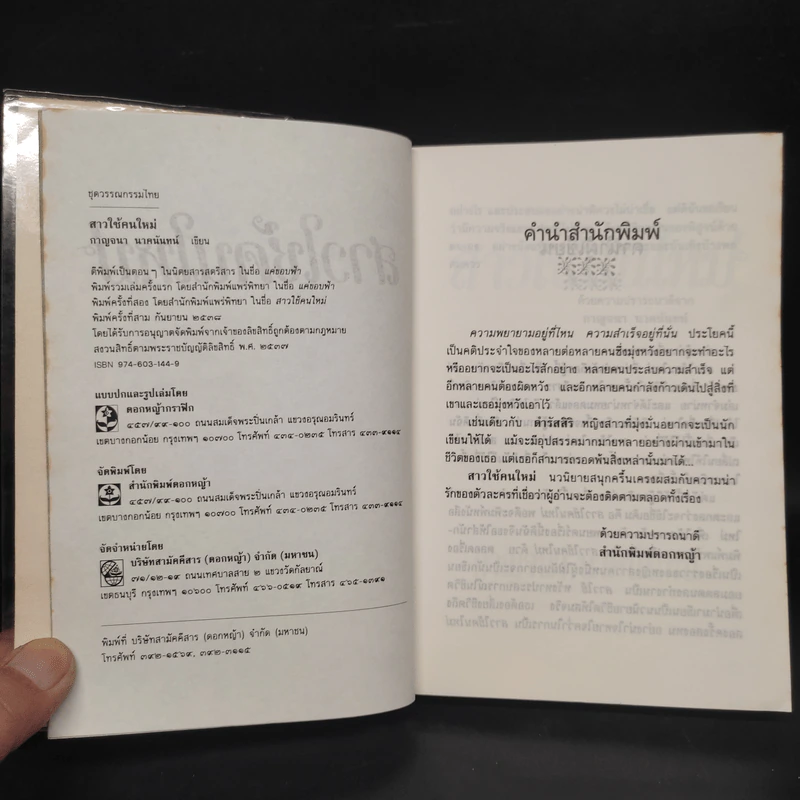 ชุดวรรณกรรมไทย
สาวใช้คนใหม่
กาญจนา นาคนันทน์ เขียน
ตีพิมพ์เป็นตอนๆ ในนิตยสารสตรีสาร ในชื่อ แค่ขอบฟ้า
พิมพ์รวมเล่มครั้งแรก โดยสำนักพิมพ์แพร่พิทยา ในชื่อ แค่ขอบฟ้า
พิมพ์ครั้งที่สอง โดยสำนักพิมพ์แพร่พิทยา ในชื่อ สาวใช้คนใหม่
พิมพ์ครั้งที่สาม กันยายน ๒๕๓๘
โดยได้รับการอนุญาตจัดพิมพ์จากเจ้าของลิขสิทธิ์ถูกต้องตามกฎหมาย
สงวนสิทธิ์ตามพระราชบัญญัติลิขสิทธิ์ พ.ศ. ๒๕๓๗
ISBN 974-603-144-9
แบบปกและรูปเล่มโดย
ดอกหญ้ากราฟิก
๔๕๗/๙๙-๑๐๐ ถนนสมเด็จพระปิ่นเกล้า แขวงอรุณอมรินทร์
เขตบางกอกน้อย กรุงเทพฯ ๑๐๗๐๐ โทรศัพท์ ๔๓๔-๐๒๓๕ โทรสาร ๔๓๓-๙๑๑๔
จัดพิมพ์โดย
สำนักพิมพ์ดอกหญ้า
๔๕๗/๙๙-๑๐๐ ถนนสมเด็จพระปิ่นเกล้า แขวงอรุณอมรินทร์
เขตบางกอกน้อย กรุงเทพฯ ๑๐๗๐๐ โทรศัพท์ ๔๓๔-๐๒๓๕ โทรสาร ๔๓๓-๙๑๑๔
จัดจำหน่ายโดย
บริษัทสามัคคีสาร (ดอกหญ้า) จำกัด (มหาชน)
๗๑/๑๒-๑๙ ถนนเทศบาลสาย ๒ แขวงวัดกัลยาณ์
เขตธนบุรี กรุงเทพฯ ๑๐๖๐๐ โทรศัพท์ ๔๖๖-๐๕๑๙ โทรสาร ๔๖๕-๑๓๙๑
พิมพ์ที่ บริษัทสามัคคีสาร (ดอกหญ้า) จำกัด (มหาชน)
โทรศัพท์ ๓๙๒-๑๕๖๙, ๓๙๒-๓๑๑๕
คำนำสำนักพิมพ์
ความพยายามอยู่ที่ไหน ความสำเร็จอยู่ที่นั่น ประโยคนี้
เป็นคติประจำใจของหลายต่อหลายคนซึ่งมุ่งหวังอยากจะทำอะไร
หรืออยากจะเป็นอะไรสักอย่าง หลายคนประสบความสำเร็จ แต่
อีกหลายคนต้องผิดหวัง และอีกหลายคนกำลังก้าวเดินไปสู่สิ่งที่
เขาและเธอมุ่งหวังเอาไว้
เช่นเดียวกับ ดำรัสสิริ หญิงสาวที่มุ่งมั่นอยากจะเป็นนัก
เขียนให้ได้ แม้จะมีอุปสรรคมากมายหลายอย่างผ่านเข้ามาใน
ชีวิตของเธอ แต่เธอก็สามารถรอดพ้นสิ่งเหล่านั้นมาได้...
สาวใช้คนใหม่ นวนิยายสนุกครื้นเครงผสมกับความน่า
รักของตัวละครที่เชื่อว่าผู้อ่านจะต้องติดตามตลอดทั้งเรื่อง
ด้วยความปรารถนาดี
สำนักพิมพ์ดอกหญ้า